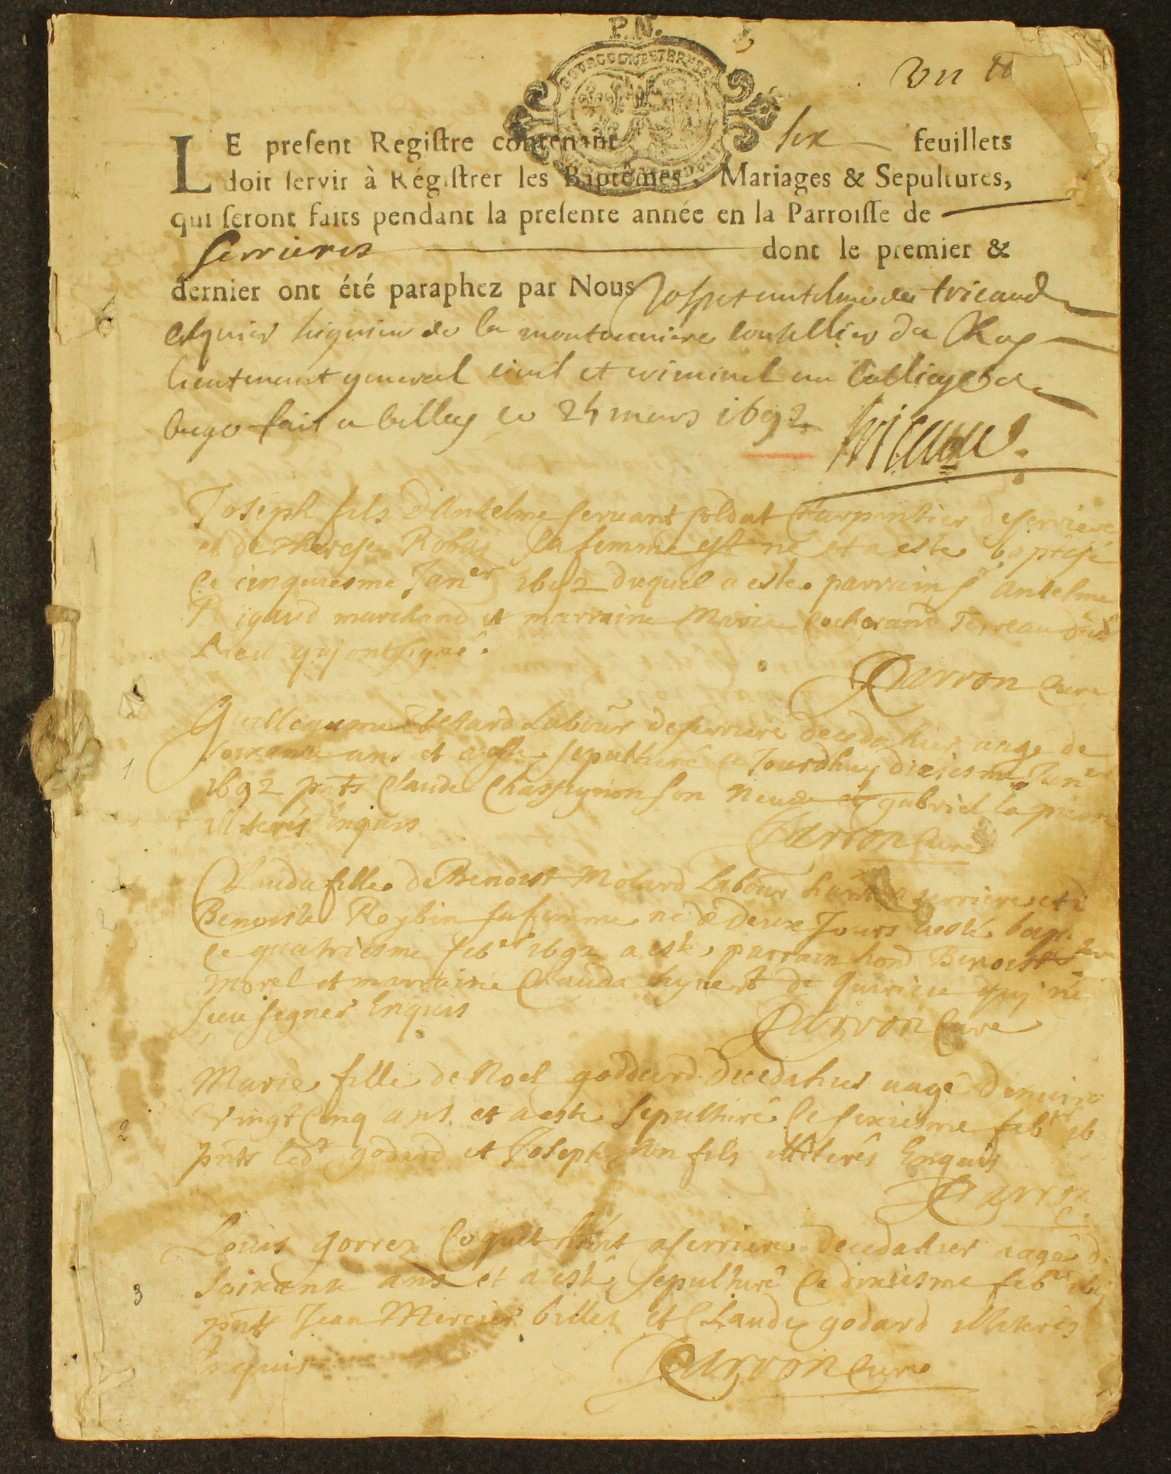 P.N.
LE present Registre contenant six feuillets
doit servir à Régistrer les Baptêmes, Mariages & Sepultures,
qui seront faits pendant la presente année en la Parroisse de
Serrieres dont le premier &
dernier ont été paraphez par Nous Joseph antelme de tricaud
esquier seigneur de la conseillier du Roy
lieutenant general civil et criminel au balliage de
bugey fait a belley ce 24 mars 1692
Tricaud
Joseph fils d'Antelme servant soldat Charpentier de serriere
et de Therese Robin sa femme est né et a esté baptisé
le cinquiesme Janer 1692 duquel a esté parrain Sr Antelme
Rigaud marchand et marraine Marie
quj ont signé.
Darron Cure
Labour de serriere decedahier aagé de
soixante ans et a este sepulturé ce Jourdhuy dixiesme Janer
1692 pnts Claude Chasseignion son et gabriel la pierre
illiterés Enquis
Darron Cure
Clauda fille de Benoist Molard Labour serriere et d
Benoiste Roybin sa femme né de deux Jours a esté bapt
le quatriesme feber 1692 a esté parrain hond Benoist
Morel et marraine Clauda de quirieu quj ne
sceu signer Enquis
Darron Cure
Marie fille de Noel goddard decedahier aagé denviro
vingt Cinq ans et a este sepulturé le sixiesme feber 16
pnts led godard et Joseph son fils illiterés Enquis
Darron
C.
Louis gorrez habt a serriere decedahier aagé d
soixante ans et a esté sepulturé le dixiesme feber
pnts Jean Mercier billet et Claude godard illiterés
Enquis
Darron Cure
1
1
2
3